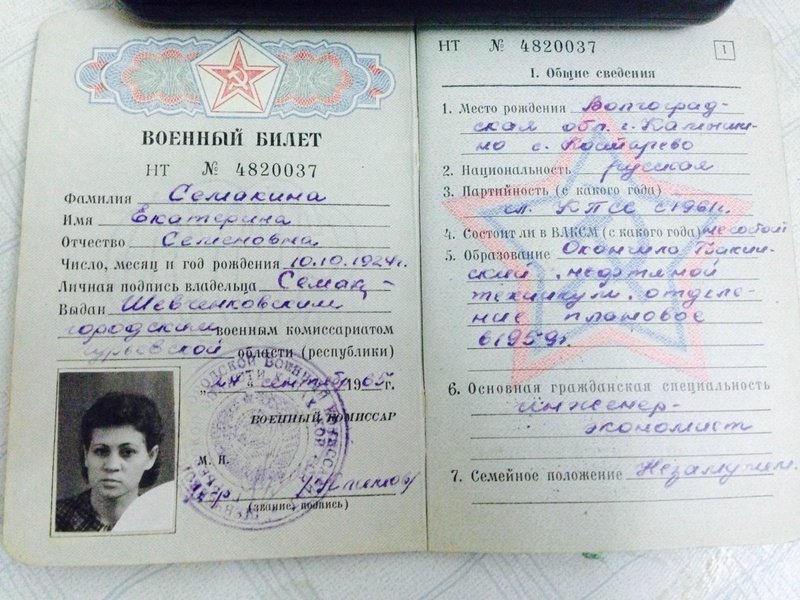 ВОЕННЫЙ БИЛЕТ
НТ № 4820037
Фамилия Семакина
Имя Екатерина
Отчество Семеновна
Число, месяц и год рождения 10.10.1924г.
Личная подпись владельца Семак
Выдан Шевченковским
городским военным комиссариатом
Гурьевской области (республики)
"24" сентября 1965 г.
ВОЕННЫЙ КОМИССАР
М. П.
(звание, подпись)
НТ № 4820037
1
I. Общие сведения
1. Место рождения Волгоград-
ская обл. г. Камыши-
но с.
2. Национальность русская
3. Партийность (с какого года)
чл. КПСС с 1961г.
4. Состоит ли в ВЛКСМ (с какого года)
5. Образование Окончила Бакин-
ский нефтяной
техникум, отделе-
ние плановое
в 1959г.
6. Основная гражданская специальность
инженер-
экономист
7. Семейное положение Незамужем.